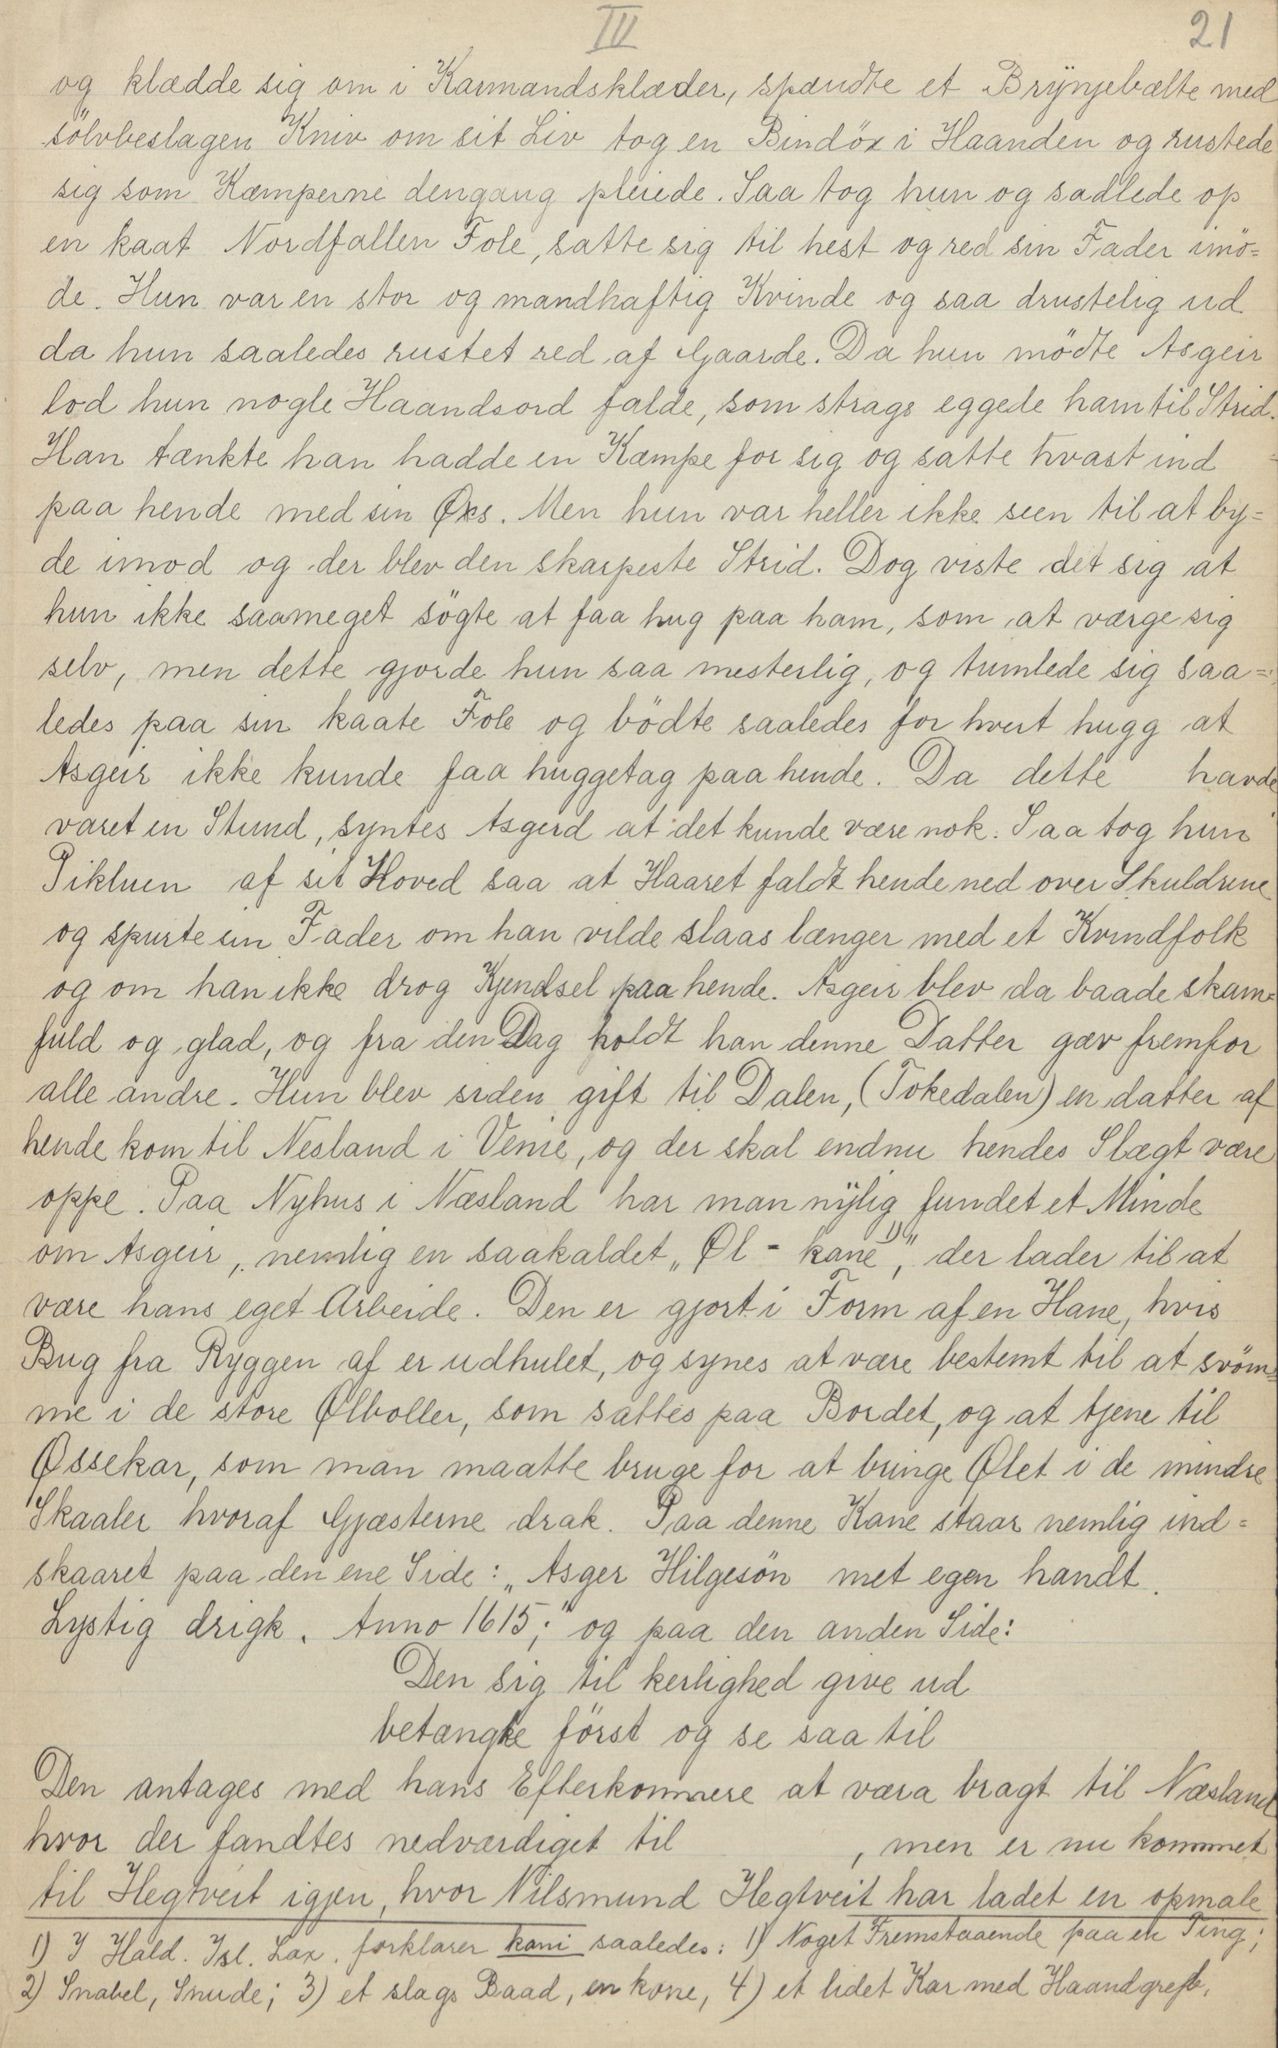 III
21
og klædde sig om i Karmandsklæder, spændte et Brynjebælte med
sölvbeslagen Kniv om sit Liv tog en Bindöx i Haanden og rustede
sig som Kæmperne dengang pleiede. Saa tog hun og sadlede op
en kaat Nordfallen Fole, satte sig til hest og red sin Fader imö=
de. Hun var en stor og mandhaftig Kvinde og saa drustelig ud
da hun saaledes rustet red af Gaarde. Da hun mödte Asgeir
lod hun nogle Haandsord falde, som strags eggede ham til Strid.
Han tænkte han hadde en Kæmpe for sig og satte hvast ind
paa hende med sin Øks. Men hun var heller ikke seen til at by=
de imod og der blev den skarpeste Strid. Dog viste det sig at
hun ikke saameget sögte at faa hug paa ham, som at værge sig
selv, men dette gjorde hun saa mesterlig, og tumlede sig saa=
ledes paa sin kaate Fole og bödte saaledes for hvert hugg at
Asgeir ikke kunde faa huggetag paa hende. Da dette havde
varet en Stund, syntes Asgerd at det kunde være nok. Saa tog hun
Pikluen af sit Hoved saa at Haaret faldt hende ned over Skuldrene
og spurte sin Fader om han vilde slaas længer med et Kvindfolk
og om han ikke drog Kjendsel paa hende. Asgeir blev da baade skam=
fuld og glad, og fra den Dag holdt han denne Datter gæv fremfor
alle andre. Hun blev siden gift til Dalen, (Tokedalen) en datter af
hende kom til Nesland i Venie, og der skal endnu hendes Slægt være
oppe. Paa Nyhus i Næsland har man nylig fundet et Minde
om Asgeir, nemlig en saakaldet „Øl - kane 1)“, der lader til at
være hans eget Arbeide. Den er gjort i Form af en Hane, hvis
Bug fra Ryggen af er udhulet, og synes at være bestemt til at svöm=
me i de store Ølboller, som sattes paa Bordet, og at tjene til
Øssekar, som man maatte bruge for at bringe Ølet i de mindre
Skaaler hvoraf Gjæsterne drak. Paa denne Kane staar nemlig ind=
skaaret paa den ene Side: „Asger Hilgesön met egen handt.
Lystig drigk. Anno 1615;“ og paa den anden Side:
Den sig til kerlighed give ud
betængke först og se saa til
Den antages med hans Efterkommere at være bragt til Næsland
hvor der fandtes nedværdiget til , men er nu kommet
til Hegtveit igjen, hvor Nilsmund Hegtveit har ladet en opmale
1) I Hald. Isl. Lax. forklarer kani saaledes: 1) Noget Fremstaaende paa en Ting;
2) Snabel, Snude; 3) et slags Baad, en kone, 4) et lidet Kar med Haandgreb.